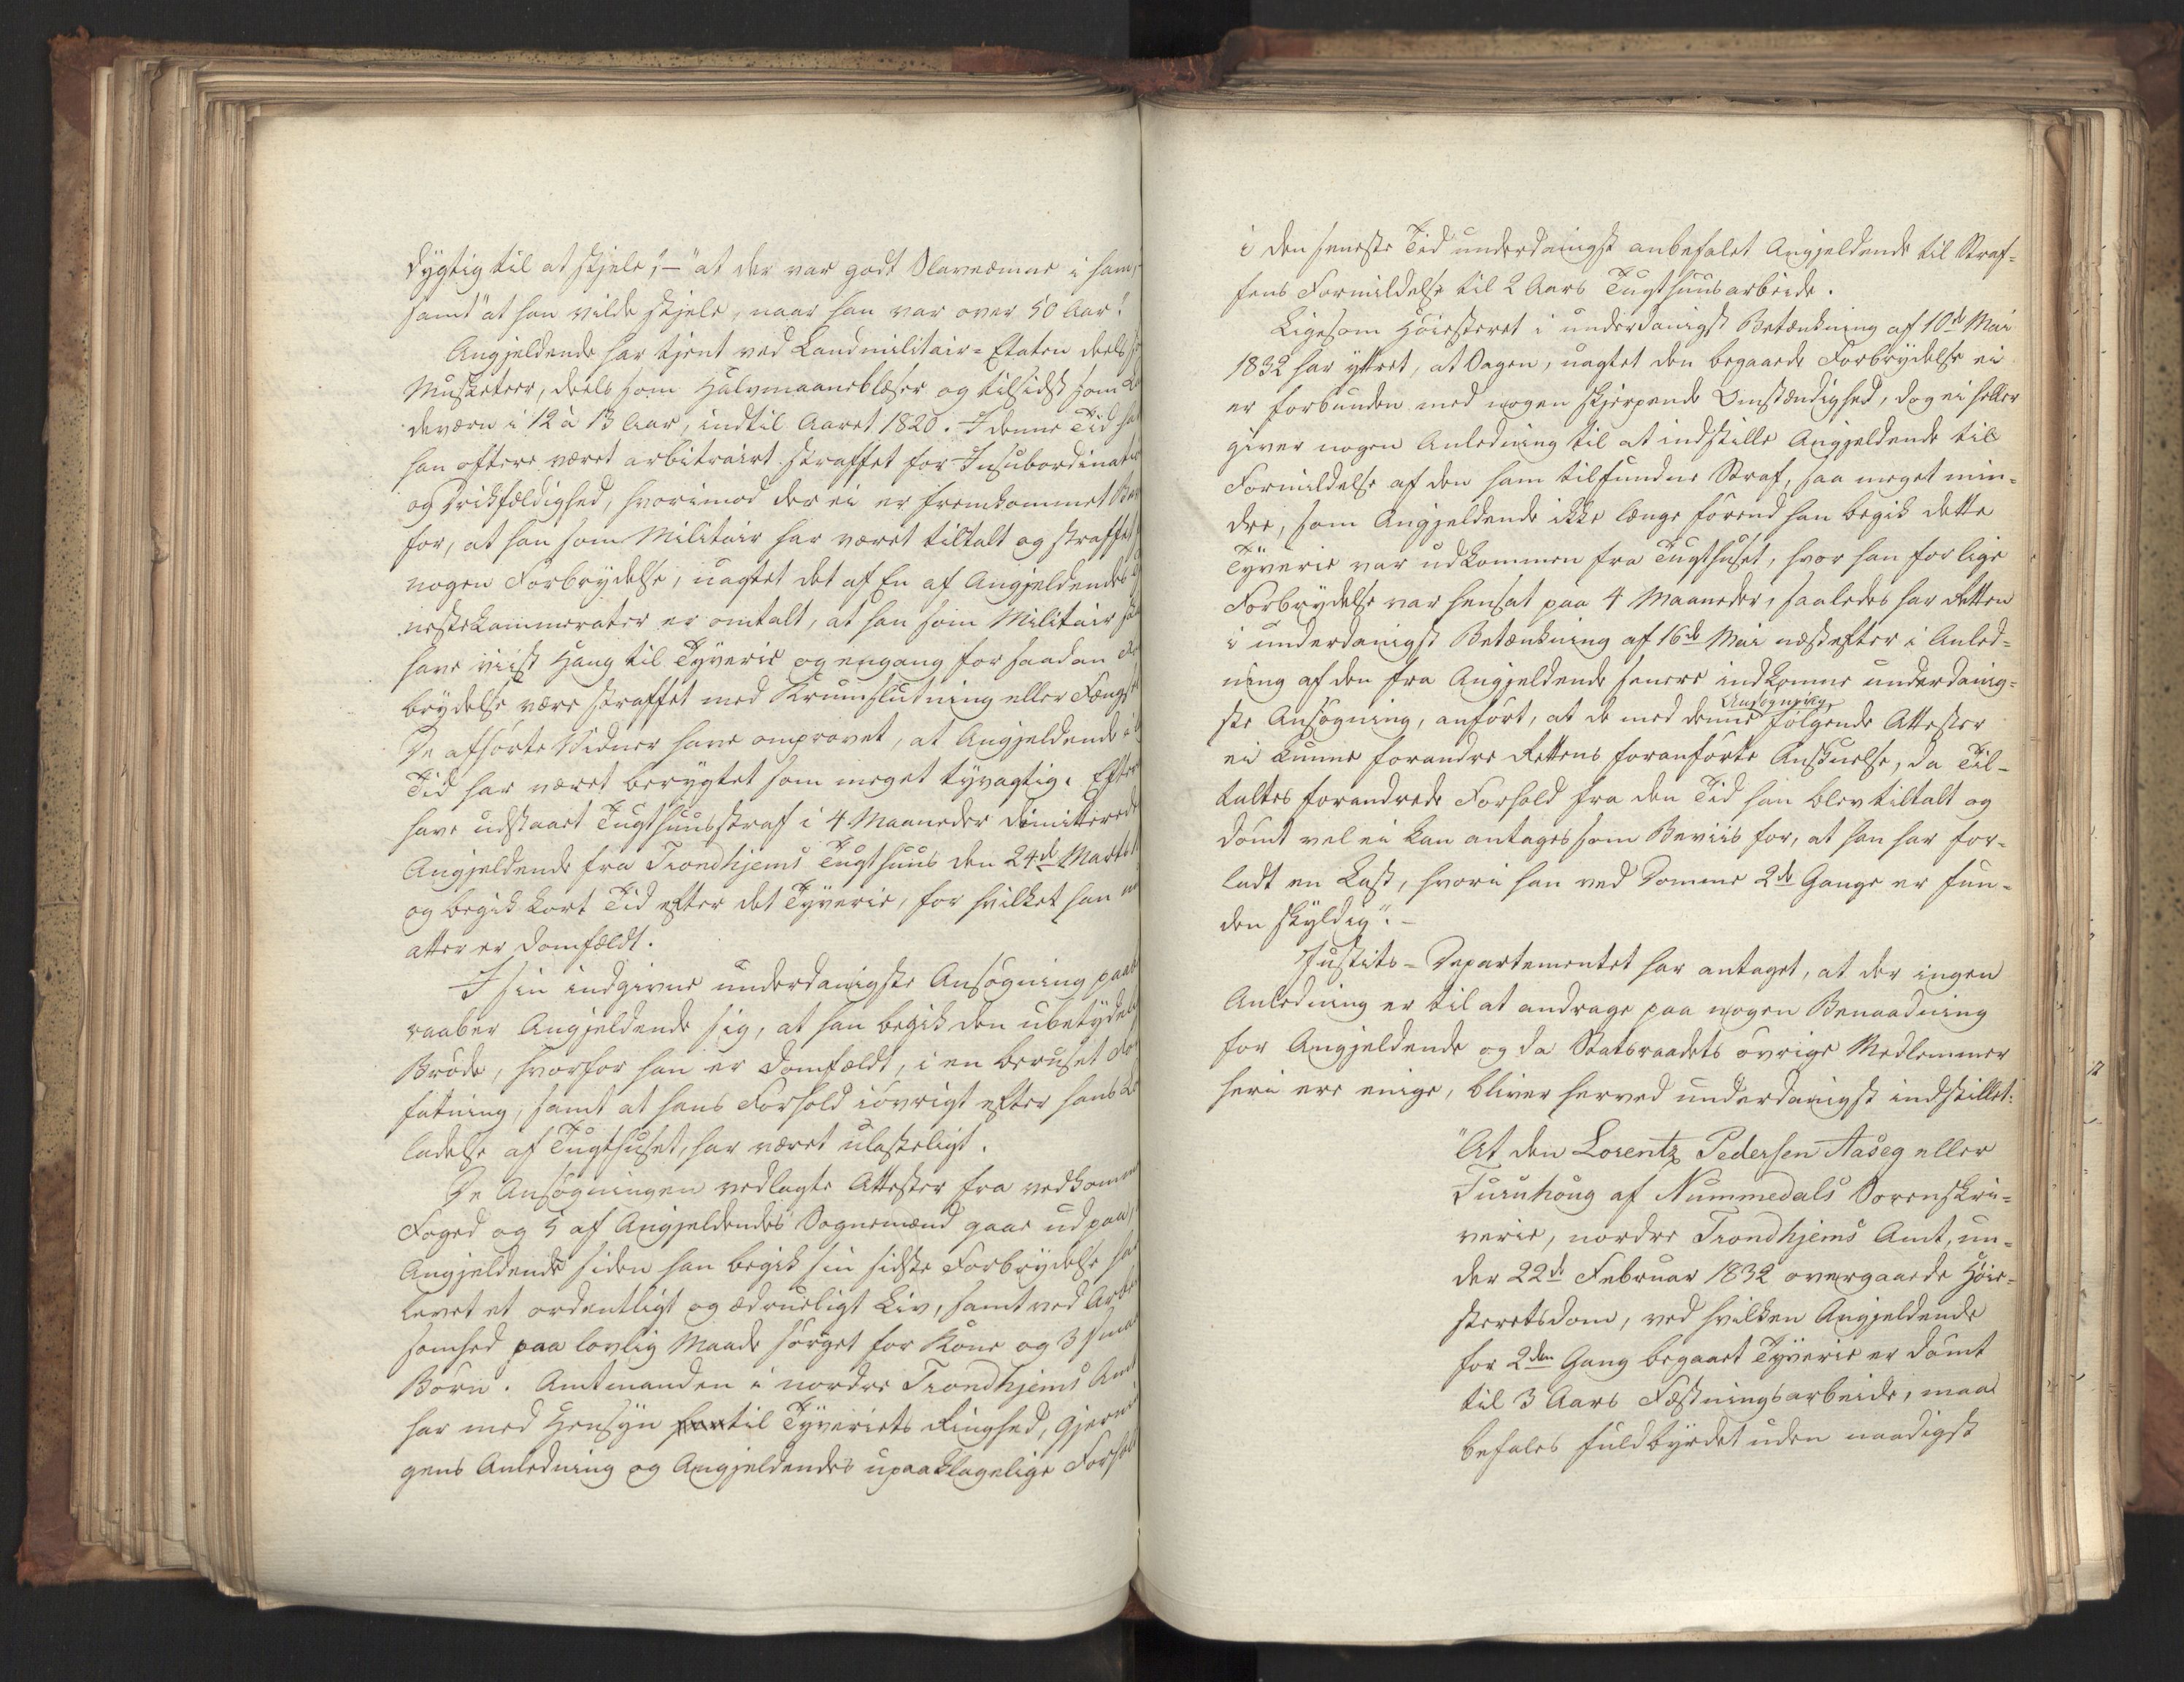 dygtig til at stjele", – "at der var godt Slaveemne i ham,"
samt "at han vilde stjele, naar han var over 50 Aar".
Angjeldende har tjent ved Landmilitair-Etaten deels
Musketeer, deels som Halvmaaneblæser og tilsidst som
deværn i 12 à 13 Aar, indtil Aaret 1820. I denne Tid
han oftere været arbitrairt straffet for Insubordinat
og Drikfældighed, hvorimod der ei er fremkommet
for, at han som Militair har været tiltalt og straffet
nogen Forbrydelse, uagtet det af En af Angjeldendes
nestekammerater er omtalt, at han som Militair
have viist Hang til Tyverie og engang for saadan
brydelse være straffet med Krumslutning eller Fængs
De afhørte Vidner have omprovet, at Angjeldende
Tid har været berygtet som meget tyvagtig. Efter
have udstaaet Tugthuusstraf i 4 Maaneder dimitterede
Angjeldende fra Trondhjems Tugthuus den 24de Marts
og begik kort Tid efter det Tyverie, for hvilket han
atter er domfældt.
I sin indgivne underdanigste Ansøgning paa
raaber Angjeldende sig, at han begik den ubetydel
Brøde, hvorfor han er domfældt, i en beruset
fatning, samt at hans Forhold iøvrigt efter hans
ladelse af Tugthuset, har været ulasteligt.
De Ansøgningen vedlagte Attester fra vedkomm
Foged og 5 af Angjeldendes Sognemænd gaae ud paa,
Angjeldende siden han begik sin sidste Forbrydelse
levet et ordentligt og ædrueligt Liv, samt ved Arbei
somhed paa lovlig Maade sørget for Kone og 3 smaa
Børn. Amtmanden i nordre Trondhjems Amt
har med Hensyn til Tyveriets Ringhed, Gjerni
gens Anledning og Angjeldendes upaaklagelige Forhold
i den seneste Tid underdanigst anbefalet Angjeldende til Straf-
fens Formildelse til 2 Aars Tugthuusarbeide.
Ligesom Høiesteret i underdanigst Betænkning af 10de Mai
1832 har yttret, at Sagen, uagtet den begaaede Forbrydelse ei
er forbunden med nogen skjerpende Omstændighed, dog ei heller
giver nogen Anledning til at indstille Angjeldende til
Formildelse af den ham tilfundne Straf, saa meget min-
dre, som Angjeldende ikke længe førend han begik dette
Tyverie var udkommen fra Tugthuset, hvor han for lige
Forbrydelse var hensat paa 4 Maaneder, saaledes har Retten
i underdanigst Betænkning af 16de Mai næstefter i Anled-
ning af den fra Angjeldende senere indkomne underdanig-
ste Ansøgning, anført, at de med denne Ansøgning følgende Attester
ei kunne forandre Rettens foranførte Anskuelse, da Til-
taltes forandrede Forhold fra den Tid han blev tiltalt og
dømt vel ei kan antages som Beviis for, at han har for-
ladt en Last, hvori han ved Domme 2de Gange er fun-
den skyldig". –
Justits-Departementet har antaget, at der ingen
Anledning er til at andrage paa nogen Benaadning
for Angjeldende og da Statsraadets øvrige Medlemmer
heri ere enige, bliver herved underdanigst indstillet:
"At den Lorentz Pedersen Aaseg eller
Turuhoug af Nummedals Sorenskri-
verie, nordre Trondhjems Amt, un-
der 22de Februar 1832 overgaaede Høie-
steretsdom, ved hvilken Angjeldende
for 2den Gang begaaet Tyverie er dømt
til 3 Aars Fæstningsarbeide, maa
befales fuldbyrdet uden naadigst